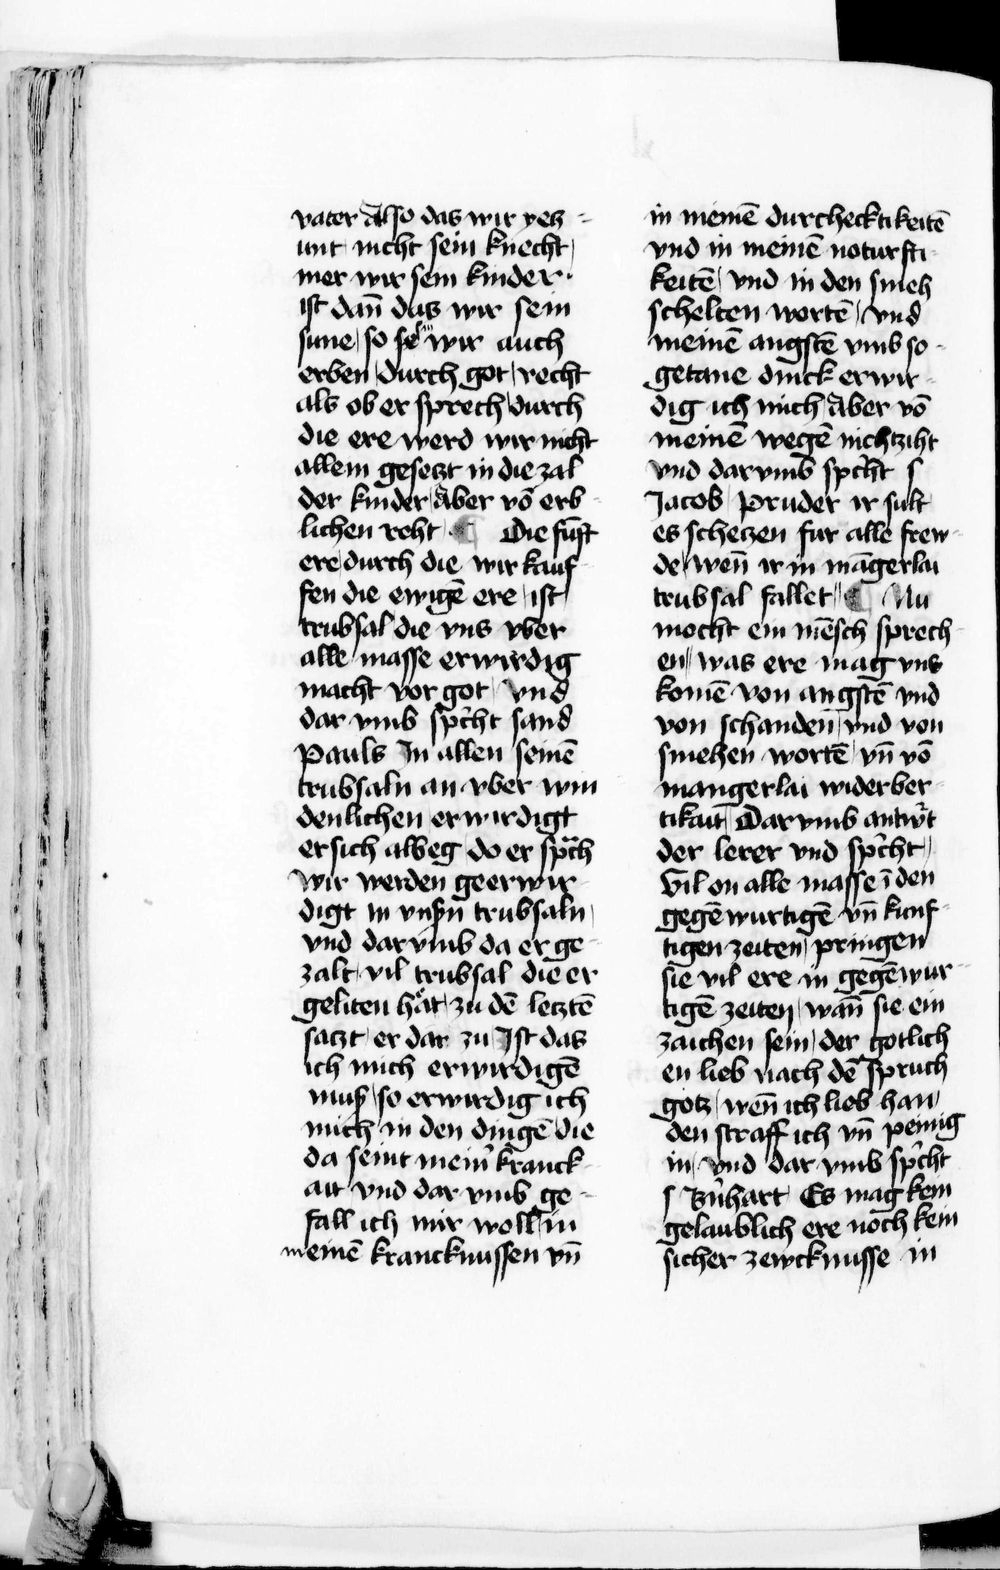 vater Also das wir yetz-
unt nicht sein knecht
mer wir sein kinder·
ist dan̄ das wir sein
sune so se wir auch
erben durch got recht
als ob er sprech durch
die ere werd wir nicht
allein gesetzt in die zal
der kinder Aber vō erb-
lichen reht ¶ Die fūft
ere durch die wir kauf-
fen die ewigē ere ist
trubsal die vns vber
alle masse erwirdig
macht vor got Vnd
dar vmb spͨht sand
Pauls In allen seinē
trubsaln an vber win
denlichen erwirdigt
er sich albeg do er spͣch
Wir werden geerwir-
digt in vnsn̄ trubsaln
vnd dar vmb da er ge-
zalt vil trubsal die er
geliten hat zu dē letztē
satzt er dar zu Ist das
ich mich erwirdigē
muß so erwirdig ich
mich in den dingē die
da seint mein̄ kranck-
ait vnd dar vmb ge-
fall ich mir woll in
meinē krancknussen vn̄
in meinē durchecktikeitē
vnd in meinē noturfti-
keitē vnd in den smeh
schelten wortē Vnd
meinē angstē vmb so-
getane dinck erwir-
dig ich mich Aber vō
meinē wegē nichtziht
vnd dar vmb spͨht s
Jacob Pruder ir sult
es schetzen fur alle frew-
de wen̄ ir in māgerlai
trubsal fallet ¶ Nu
mocht ein mēsch sprech-
en was ere mag vns
komē von angstē vnd
von schanden vnd von
smehen wortē vn̄ vō
mangerlai widerber-
tikait Dar vmb antwͬt
der lerer vnd spͨht
Vil on alle masse ī den
gegēwurtigē vn̄ kunf-
tigen zeiten pringen
sie vil ere in gegēwur-
tigē zeiten wan̄ sie ein
zaichen sein der gotlich
en lieb nach dē spruch
gotz wen̄ ich lieb han
den straff ich vn̄ peinig
in vnd dar vmb spͨht
s bn̄hart Es mag kein
gelaublich ere noch kein
sicher zewcknusse in